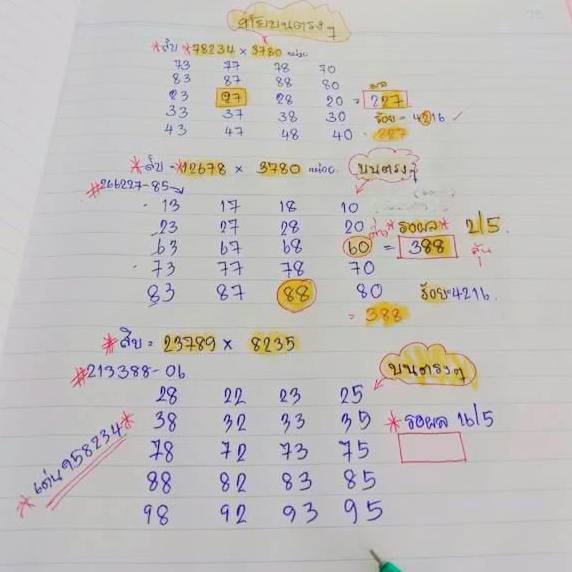 บนตรงๆ
*สิบ *78234 × 3780 หน่วย
73 77 78 70
83 87 88 80
ผล
23 27 28 20 = 227
33 37 38 30 ร้อย = 4216
43 47 48 40 227
*สิบ = *12678 × 3780 หน่วย บนตรงๆ
#266227-85
13 17 18 10
23 27 28 20 *รอผล* 2/5.
63 67 68 60 = 388
73 77 78 70
83 87 88 80 ร้อย=4216.
= 388
*สิบ = 23789 × 8235
#213388-06 บนตรงๆ
28 22 23 25
38 32 33 35 *รอผล 16/5
78 72 73 75
88 82 83 85
98 92 93 95
*เด่น958234*